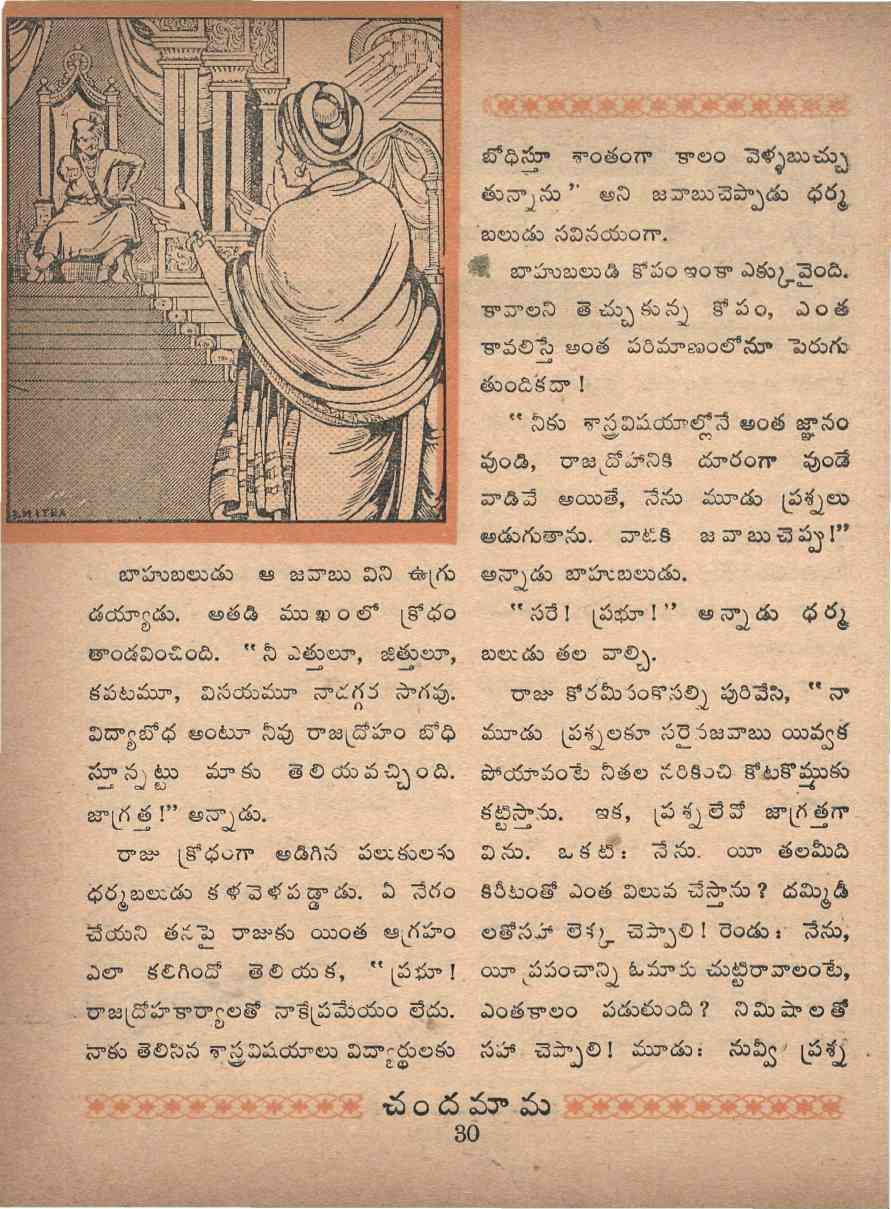 S.MITRA
బాహుబలుడు ఆ జవాబు విని ఉగ్రు
డయ్యాడు. అతడి ముఖంలో క్రోధం
తాండవించింది. “నీ ఎత్తులూ, జిత్తులూ,
కపటమూ, వినయమూ నాదగ్గర సాగవు.
విద్యాబోధ అంటూ నీవు రాజద్రోహం బోధి
స్తూన్నట్టు మాకు తెలియవచ్చింది.
జాగ్రత్త!” అన్నాడు.
రాజు క్రోధంగా అడిగిన పలుకులకు
ధర్మబలుడు కళవెళపడ్డాడు. ఏ నేరం
చేయని తనపై రాజుకు యింత ఆగ్రహం
ఎలా కలిగిందో తెలియక, “ప్రభూ!
రాజద్రోహకార్యాలతో నాకేప్రమేయం లేదు.
నాకు తెలిసిన శాస్త్రవిషయాలు విద్యార్థులకు
బోధిస్తూ శాంతంగా కాలం వెళ్ళబుచ్చు
తున్నాను” అని జవాబుచెప్పాడు ధర్మ
బలుడు సవినయంగా.
బాహుబలుడి కోపం ఇంకా ఎక్కువైంది.
కావాలని తెచ్చుకున్న కోపం, ఎంత
కావలిస్తే అంత పరిమాణంలోనూ పెరుగు
తుందికదా!
“నీకు శాస్త్రవిషయాల్లోనే అంత జ్ఞానం
వుండి, రాజద్రోహానికి దూరంగా వుండే
వాడివే అయితే, నేను మూడు ప్రశ్నలు
అడుగుతాను. వాటికి జవాబుచెప్పు!”
అన్నాడు బాహుబలుడు.
“సరే! ప్రభూ!” అన్నాడు ధర్మ
బలుడు తల వాల్చి.
రాజు కోరమీసంకొసల్ని పురివేసి, “నా
మూడు ప్రశ్నలకూ సరైనజవాబు యివ్వక
పోయావంటే నీతల నరికించి కోటకొమ్ముకు
కట్టిస్తాను. ఇక, ప్రశ్నలేవో జాగ్రత్తగా
విను. ఒకటి: నేను. యీ తలమీది
కిరీటంతో ఎంత విలువ చేస్తాను? దమ్మిడీ
లతోసహా లెక్క చెప్పాలి! రెండు: నేను,
యీ ప్రపంచాన్ని ఓమారు చుట్టిరావాలంటే,
ఎంతకాలం పడుతుంది? నిమిషాలతో
సహా చెప్పాలి! మూడు: నువ్వీ ప్రశ్న
చందమామ
30